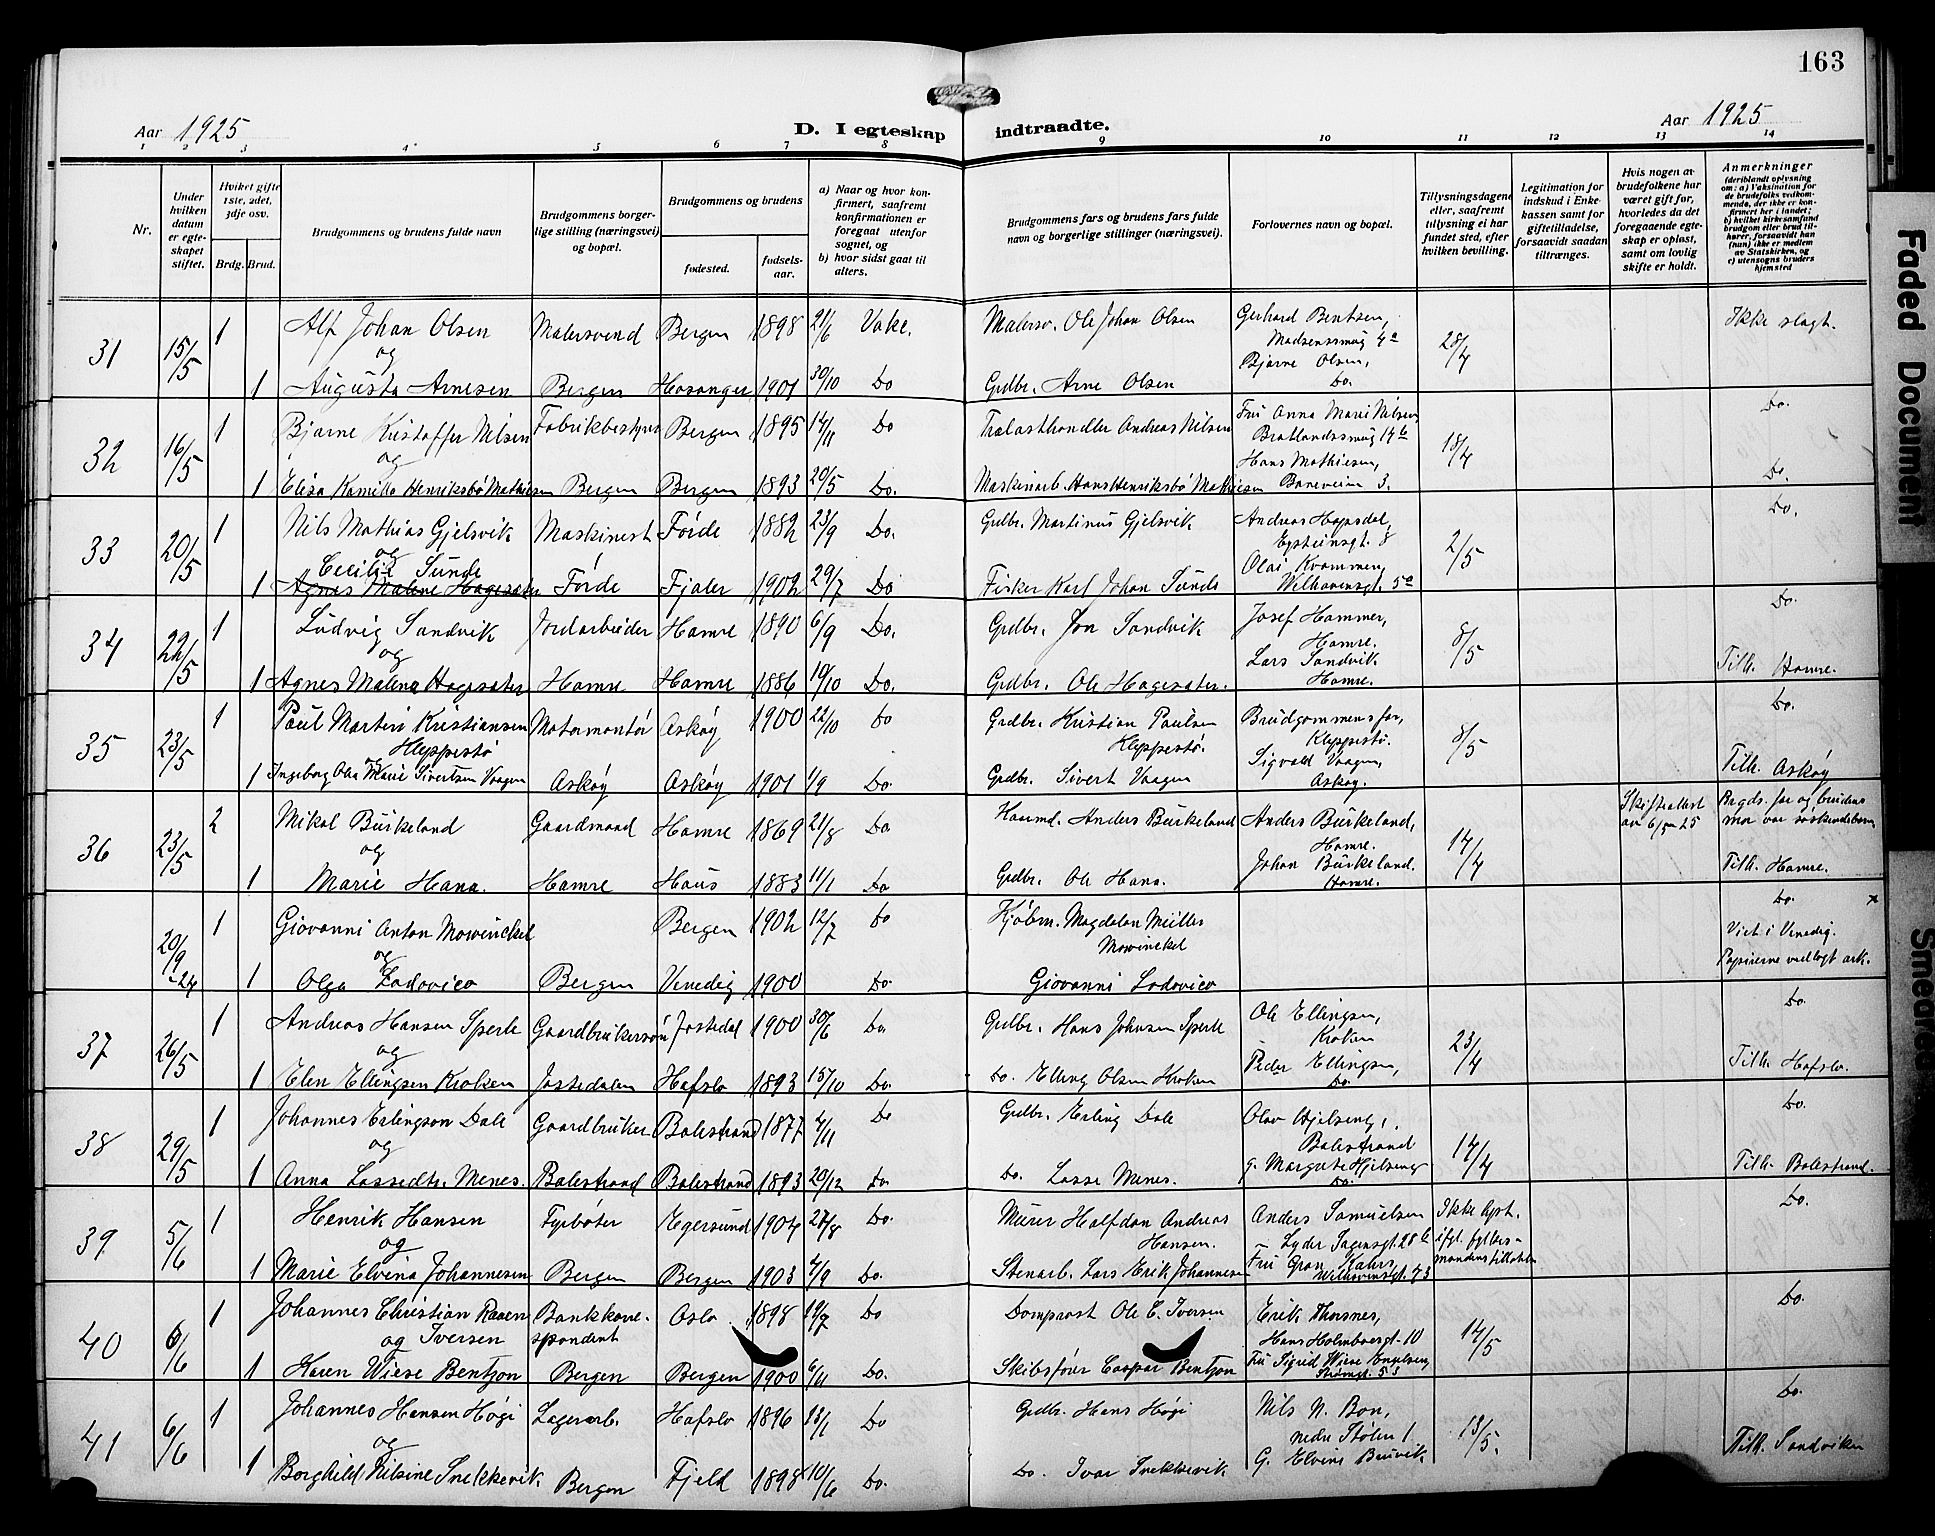 163
Aar 1925
D. I egteskap indtraadte.
Aar 1925
1 2 3 4 5 6 7 8 9 10 11 12 13 14
Nr.
Under hvilken datum er egteskapet stiftet.
Hvilket gifte 1ste, 2det, 3dje osv.
Brdg. Brud.
Brudgommens og brudens fulde navn
Brudgommens borgerlige stilling (næringsvei) og bopæl.
Brudgommens og brudens
fødested.
fødselsaar.
a) Naar og hvor konfirmert, saafremt konfirmationen er foregaat utenfor sognet, og
b) hvor sidst gaat til alters.
Brudgommens fars og brudens fars fulde navn og borgerlige stillinger (næringsvei).
Forlovernes navn og bopæl.
Tillysningsdagene eller, saafremt tillysning ei har fundet sted, efter hvilken bevilling.
Legitimation for indskud i Enkekassen samt for giftetilladelse, forsaavidt saadan tiltrænges.
Hvis nogen av brudefolkene har været gift før, hvorledes da det foregaaende egteskap er opløst, samt om lovlig skifte er holdt.
Anmerkninger
(deriblandt oplysning om: a) Vaksination for de brudefolks vedkommende, der ikke er konfirmert her i landet; b) hvilket kirkesamfund brudgom eller brud tilhører, forsaavidt han (hun) ikke er medlem av Statskirken, og c) utensogns bruders hjemsted
31 15/5 1 Alf Johan Olsen Malersvend Bergen 1898 21/6 Vake. Malersv. Ole Johan Olsen Gerhard Bentsen, Madsenssmug 4a 28/4 Ikke slegt.
og Bjarne Olsen,
1 Augusta Arnesen Bergen Hosanger 1901 30/10 Do Grdbr. Arne Olsen Do.
32 16/5 1 Bjarne Kristoffer Nilsen Fabrikbestyrer Bergen 1895 14/11 Do Trælasthandler Andreas Nilsen Fru Anna Marie Nilsen, Bratlandssmug 14b 18/4 Do.
og Hans Mathiesen,
1 Elisa Kamilla Henriksbø Mathiesen Bergen Bergen 1893 20/5 Do. Maskinarb. Hans Henriksbø Mathiesen Baneveien 3. Do.
33 20/5 1 Nils Mathias Gjelsvik Maskinist Førde 1882 23/9 Do. Grdbr. Martinus Gjelsvik Andreas Hopsdal, Eysteinsgt. 8 2/5 Do.
og Cecilie Sunde Olai Kvammen,
1 Agnes Malene Hagesæter Førde Fjaler 1902 29/7 Do Fisker Karl Johan Sunde Welhavensgt. 50
34 22/5 1 Ludvig Sandvik Jordarbeider Hamre 1890 6/9 Do. Grdbr. Jon Sandvik Josef Hammer, Hamre. 8/5 Do.
og Lars Sandvik
1 Agnes Malena Hagesæter Hamre Hamre 1886 19/10 Do. Grdbr. Ole Hagesæter. Hamre. Tilh. Hamre.
35 23/5 1 Paul Martin Kristiansen Motormontør Askøy 1900 22/10 Do Grdbr. Kristian Paulsen Brudgommens far, 8/5 Do.
Kleppestø Kleppestø. Kleppestø.
og Sigvald Vaagen,
1 Ingeborg Olea Marie Sivertsen Vaagen Askøy Askøy 1901 1/9 Do. Grdbr. Sivert Vaagen Askøy. Tilh. Askøy
36 23/5 2 Mikal Burkeland Gaardmand Hamre 1869 21/8 Do Haarmd. Anders Burkeland Anders Burkeland, Hamre. 14/4 Skifteattest av 6/5 25 Brgds. far og brudens mor var søskendebarn
og Johan Burkeland.
1 Marie Hana. Hamre Haus 1883 11/1 Do Grdbr. Ole Hana. Hamre. Tilh. Hamre.
20/9 -24 1 Giovanni Anton Mowinckel Bergen 1902 12/7 Do Kjøbm. Magdalon Müller Mowinckel Do.
og Viet i Venedig.
1 Olga Lodovico Bergen Venedig 1900 Do. Giovanni Lodovico Papirerne vedlagt ark.
37 26/5 1 Andreas Hansen Sperle Gaardbrukersøn Jostedal 1900 30/6 Do. Grdbr. Hans Johnsen Sperle Ole Ellingsen, Kroken 23/4 Do.
og Peder Ellingsen,
1 Elen Ellingsen Kroken Jostedalen Hafslo 1893 15/10 Do. Do. Elling Olsen Kroken Do. Tilh. Hafslo.
38 29/5 1 Johannes Erlingson Dale Gaardbruker Balestrand 1877 4/11 Do Grdbr. Erling Dale Olav Hjelseng, Balestrand 14/4 Do.
og g. Margrete Hjelseng
1 Anna Lassedtr. Menes. Balestrand Balestrand 1893 20/12 Do. Do. Lasse Menes. Do. Tilh. Balestrand.
39 5/6 1 Henrik Hansen Fyrbøter Egersund 1904 27/8 Do. Murer Halfdan Andreas Hansen. Anders Samuelsen Lyder Sagensgt. 28b Ikke lyst. Do.
og Fru Gran Kahrs ifgl. fylkesmandens tilladelse
1 Marie Elvina Johannesen Bergen Bergen 1903 4/9 Do. Stenarb. Lars Erik Johannesen Welhavensgt. 73
40 6/6 1 Johannes Christian Raaen Bankkorrespondent Oslo 1898 19/7 Do Domprost Ole C. Iversen Erik Thorsnes, Hans Holmboesgt. 10 14/5 Do.
og Iversen Fru Sigrid Wiese Engelsen,
1 Karen Wiese Bentzon Bergen Bergen 1900 6/11 Do. Skibsfører Caspar Bentzon Strømgt. 53
41 6/6 1 Johannes Hansen Høgi Lagerarb. Hafslo 1896 23/1 Do Grdbr. Hans Høgi Nils N. Bon, nedre Stølen 1 13/5. Do.
og G. Elvine Bruvik
1 Borghild Nilsine Snekkevik Bergen Fjeld 1898 10/6 Do. Do. Ivar Snekkevik Tilh. Sandviken
Faded Document
Smeared